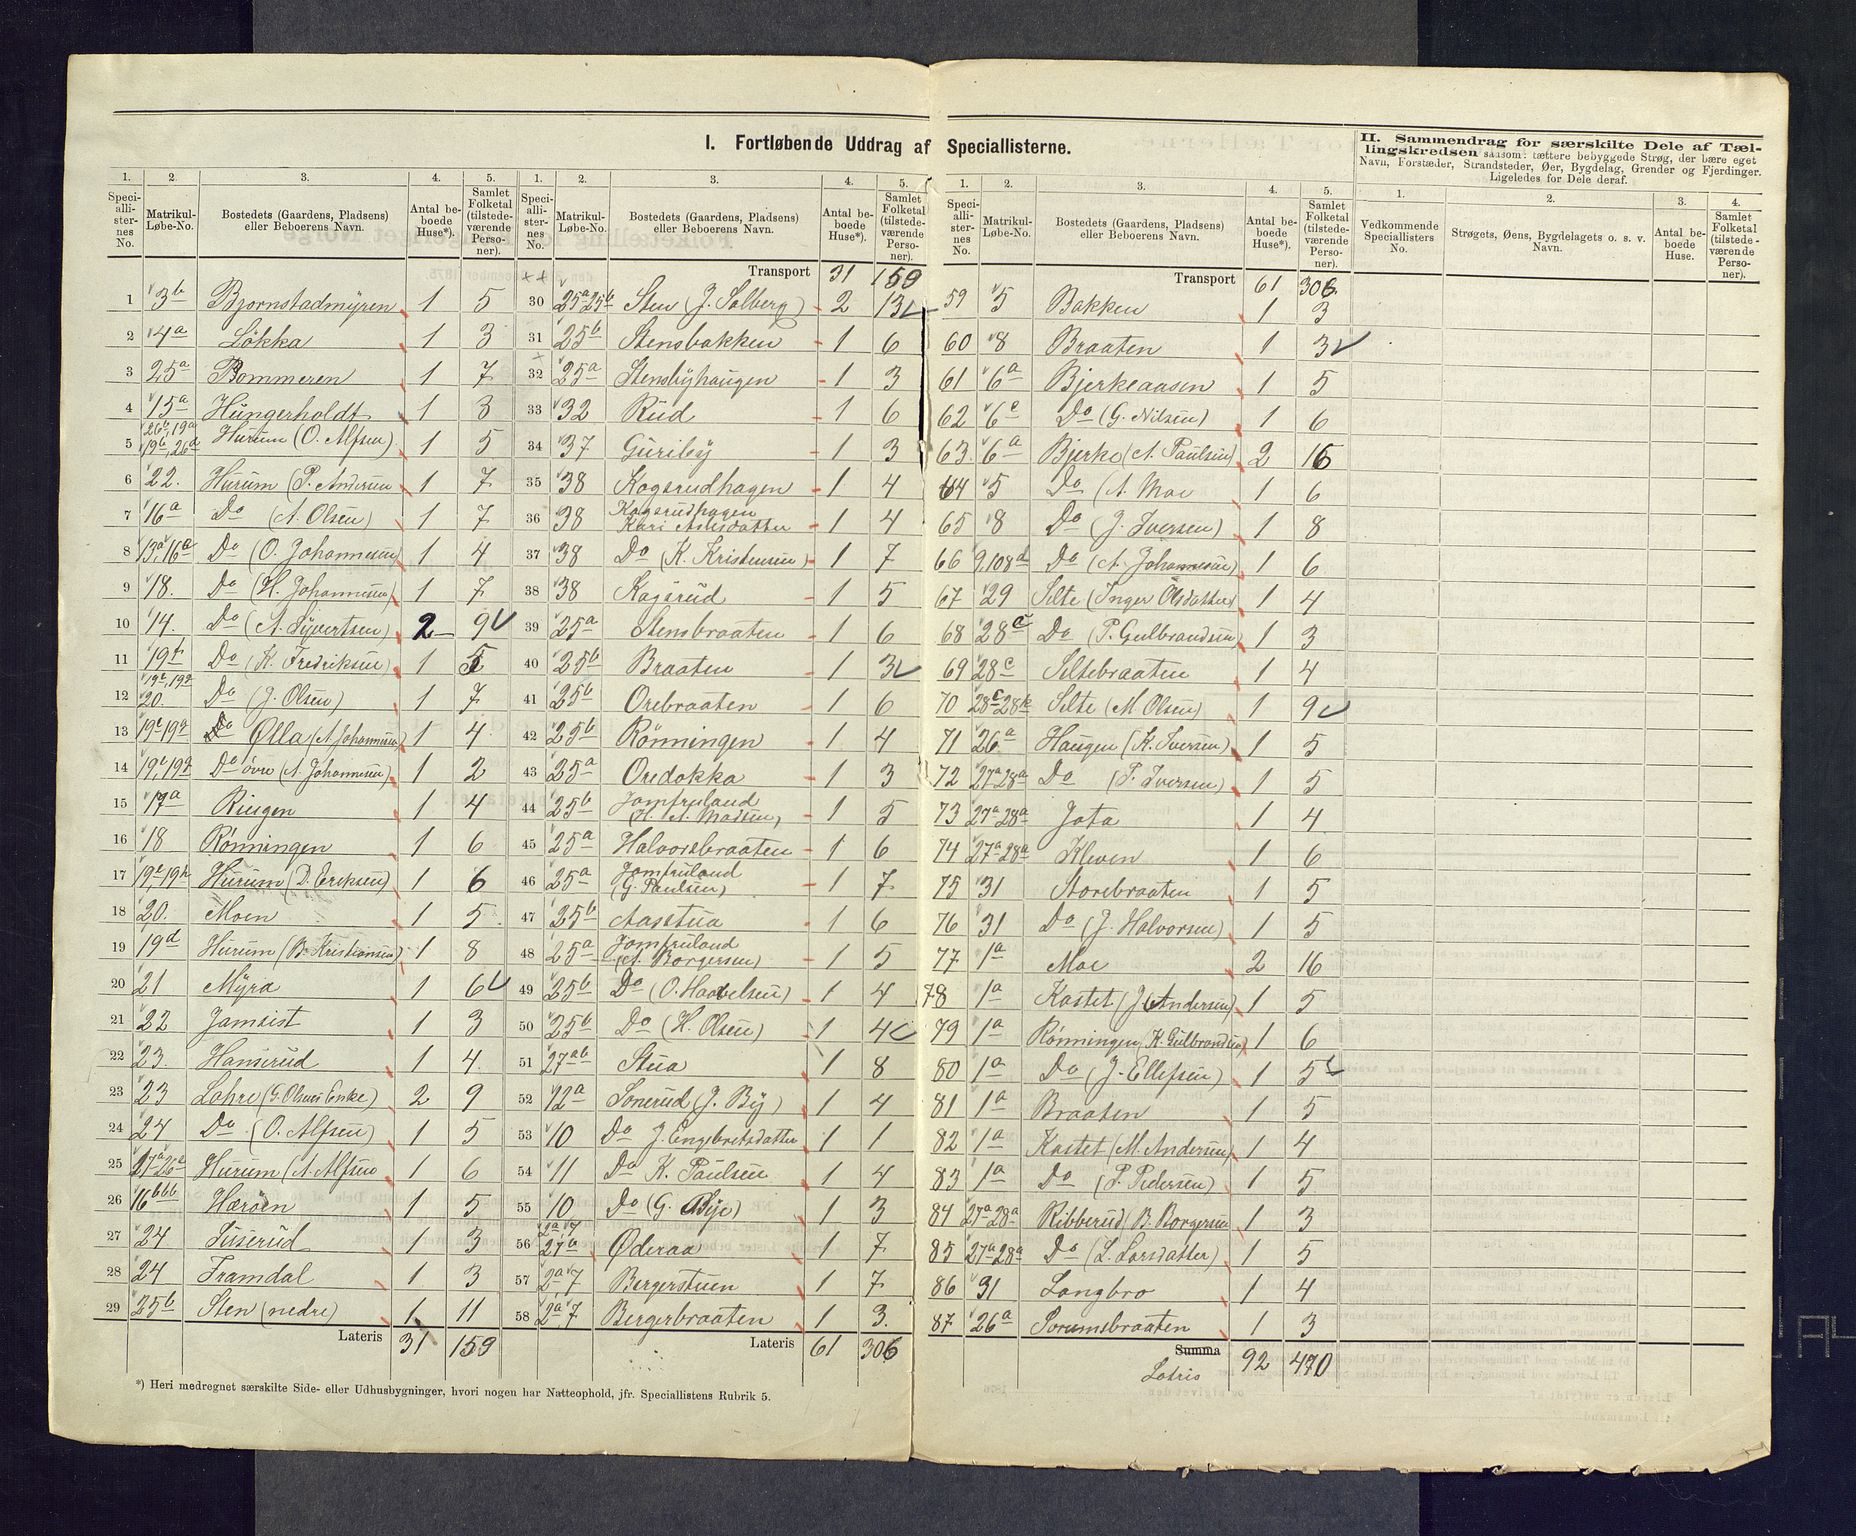 I. Fortløbende Uddrag af Speciallisterne.
II. Sammendrag for særskilte Dele af Tæl-
lingskredsen saasom: tættere bebyggede Strøg, der bære eget
Navn, Forstæder, Strandsteder, Øer, Bygdelag, Grender og Fjerdinger.
Ligeledes for Dele deraf.
1. 2. 3. 4. 5.
Speciallisternes No. Matrikul-Løbe-No. Bostedets (Gaardens, Pladsens) eller Beboerens Navn. Antal beboede Huse*). Samlet Folketal (tilstedeværende Personer).
1 3b Bjornstadmyren 1 5
2 4a Lökka 1 3
3 25a Bommeren 1 7
4 15a Hungerholdt 1 3
5 26b, 19a 19b, 26d Hurum (O. Alfsen) 1 5
6 22. Hurum (P. Andersen 1 7
7 16a Do (A. Olsen) 1 7
8 13a, 16c Do (O. Johannesen) 1 4
9 18. Do (H. Johannesen) 1 7
10 14. Do (A. Syvertsen) 2 9
11 19f Do (K. Fredriksen) 1 5
12 20. Do (J. Olsen) 1 7
13 Do Ølla (A Johannesen) 1 4
14 Do övre (A. Johannesen) 1 2
15 17a Ringen 1 4
16 18 Rönningen 1 6
17 19e, 19h Hurum (D. Eriksen) 1 6
18 20. Moen 1 5
19 19d Hurum (B. Kristiansen) 1 8
20 21 Myra 1 6
21 22 Jamsist 1 3
22 23. Hanserud 1 4
23 23 Lohre (G. Olsens Enke) 2 9
24 24 Do (O. Alfsen) 1 5
25 27a 26a Hurum (A. Alfsen 1 6
26 16bbb Haröen 1 5
27 24 Suserud 1 3
28 24 Framdal 1 3
29 25b Sten (nedre) 1 11
Lateris 31 159
1. 2. 3. 4. 5.
Speciallisternes No. Matrikul-Løbe-No. Bostedets (Gaardens, Pladsens) eller Beboerens Navn. Antal beboede Huse*). Samlet Folketal (tilstedeværende Personer).
Transport 31 159
30 25a 25b Sten (J. Solberg) 2 13
31 25b Stensbakken 1 6
32 25a Stensbyhaugen 1 3
33 32 Rud 1 6
34 37 Guriby 1 3
35 38 Kogsrudhagen 1 4
36 38 Kogsrudhagen Kari Aslesdatter 1 4
37 38 Do (K. Kristensen) 1 7
38 38 Kogsrud 1 5
39 25a Stensbraaten 1 6
40 25b Braaten 1 3
41 25b Orebraaten 1 6
42 25b Rönningen 1 4
43 25a Oredokka 1 3
44 25b Jomfruland (H. A. Madsen) 1 5
45 25a Halvorsbraaten 1 6
46 25a Jomfruland (G. Paulsen) 1 7
47 25b Aasstua 1 6
48 25a Jomfruland (A. Borgersen) 1 5
49 25b Do (O. Haavelsen) 1 4
50 25b Do (H. Olsen) 1 4
51 27ab Stua 1 8
52 12a Sonerud (J. By) 1 4
53 10 Do J. Engebretsdatter 1 1
54 11 Do K. Paulsen 1 4
55 10 Do (G. Bye) 1 3
56 2a, 7 27b Øderaa 1 7
57 2a 7 Bergerstuen 1 7
58 2a 7 Bergerbraaten 1 3.
Lateris 61 306
1. 2. 3. 4. 5.
Speciallisternes No. Matrikul-Løbe-No. Bostedets (Gaardens, Pladsens) eller Beboerens Navn. Antal beboede Huse*). Samlet Folketal (tilstedeværende Personer).
Transport 61 306
59 5 Bakken 1 3
60 8 Braaten 1 3
61 6a Bjerkeaasen 1 5
62 6c Do (G. Nilsen) 1 6
63. 6a Bjerke (A. Paulsen) 2 16
64 5 Do (A. Moe 1 6
65 8 Do (J. Iversen) 1 8
66 9, 108d Do (A. Johannesen) 1 6
67 29 Selte (Inger Olsdatter) 1 4
68 28c Do (P. Gulbrandsen) 1 3
69 28c Seltebraaten 1 4
70 28c 28k Selte (M. Olsen) 1 9
71 26a Haugen (K. Iversen) 1 5
72 27a 28a Do (P. Iversen) 1 5
73 27a 28a Jota 1 4
74 27a 28a Kleven 1 6
75 31 Storebraaten 1 5
76 31 Do (J. Halvorsen) 1 5
77 1a Moe 2 16
78 1a Kastet (J. Andersen) 1 5
79 1a Rønningen, K. Gulbrandsen) 1 6
80 1a Do (J. Ellefsen) 1 5
81 1a Braaten 1 5
82 1a Kastet (M. Andersen) 1 4
83 1a Do (P. Pedersen) 1 5
84 27a 28a Ribberud, B. Borgersen 1 3
85 27a 28a Do (L. Larsdatter) 1 5
86 31 Langbro 1 4
87 26a Sorumsbraaten 1 3
Summa
Latris 92 470
1. 2. 3. 4.
Vedkommende Speciallisters No. Strøgets, Øens, Bygdelagets o. s. v. Navn. Antal beboede Huse. Samlet Folketal (tilstedeværende Personer).
*) Heri medregnet særskilte Side- eller Udhusbygninger, hvori nogen har Natteophold, jfr. Speciallistens Rubrik 5.